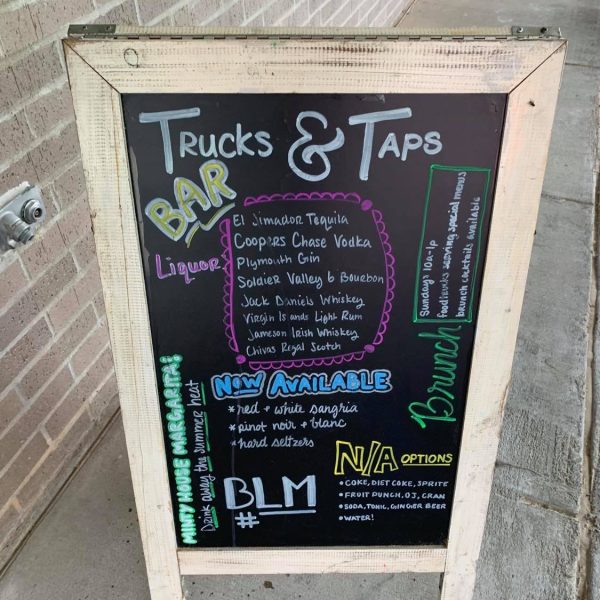 TRUCKS & TAPS
BAR
Liquor
El Jimador Tequila
Coopers Chase Vodka
Plymouth Gin
Soldier Valley 6 Bourbon
Jack Daniels Whiskey
Virgin Islands Light Rum
Jameson Irish Whiskey
Chivas Regal Scotch
Brunch
Sundays 10a-1p
foodtrucks serving special menus
brunch cocktails available
MINTY HOUSE MARGARITA!
Drink away the summer heat
NOW AVAILABLE
*red + white sangria
*pinot noir + blanc
*hard seltzers
#BLM
N/A OPTIONS
•COKE, DIET COKE, SPRITE
•FRUIT PUNCH, OJ, CRAN
•SODA, TONIC, GINGER BEER
•WATER!